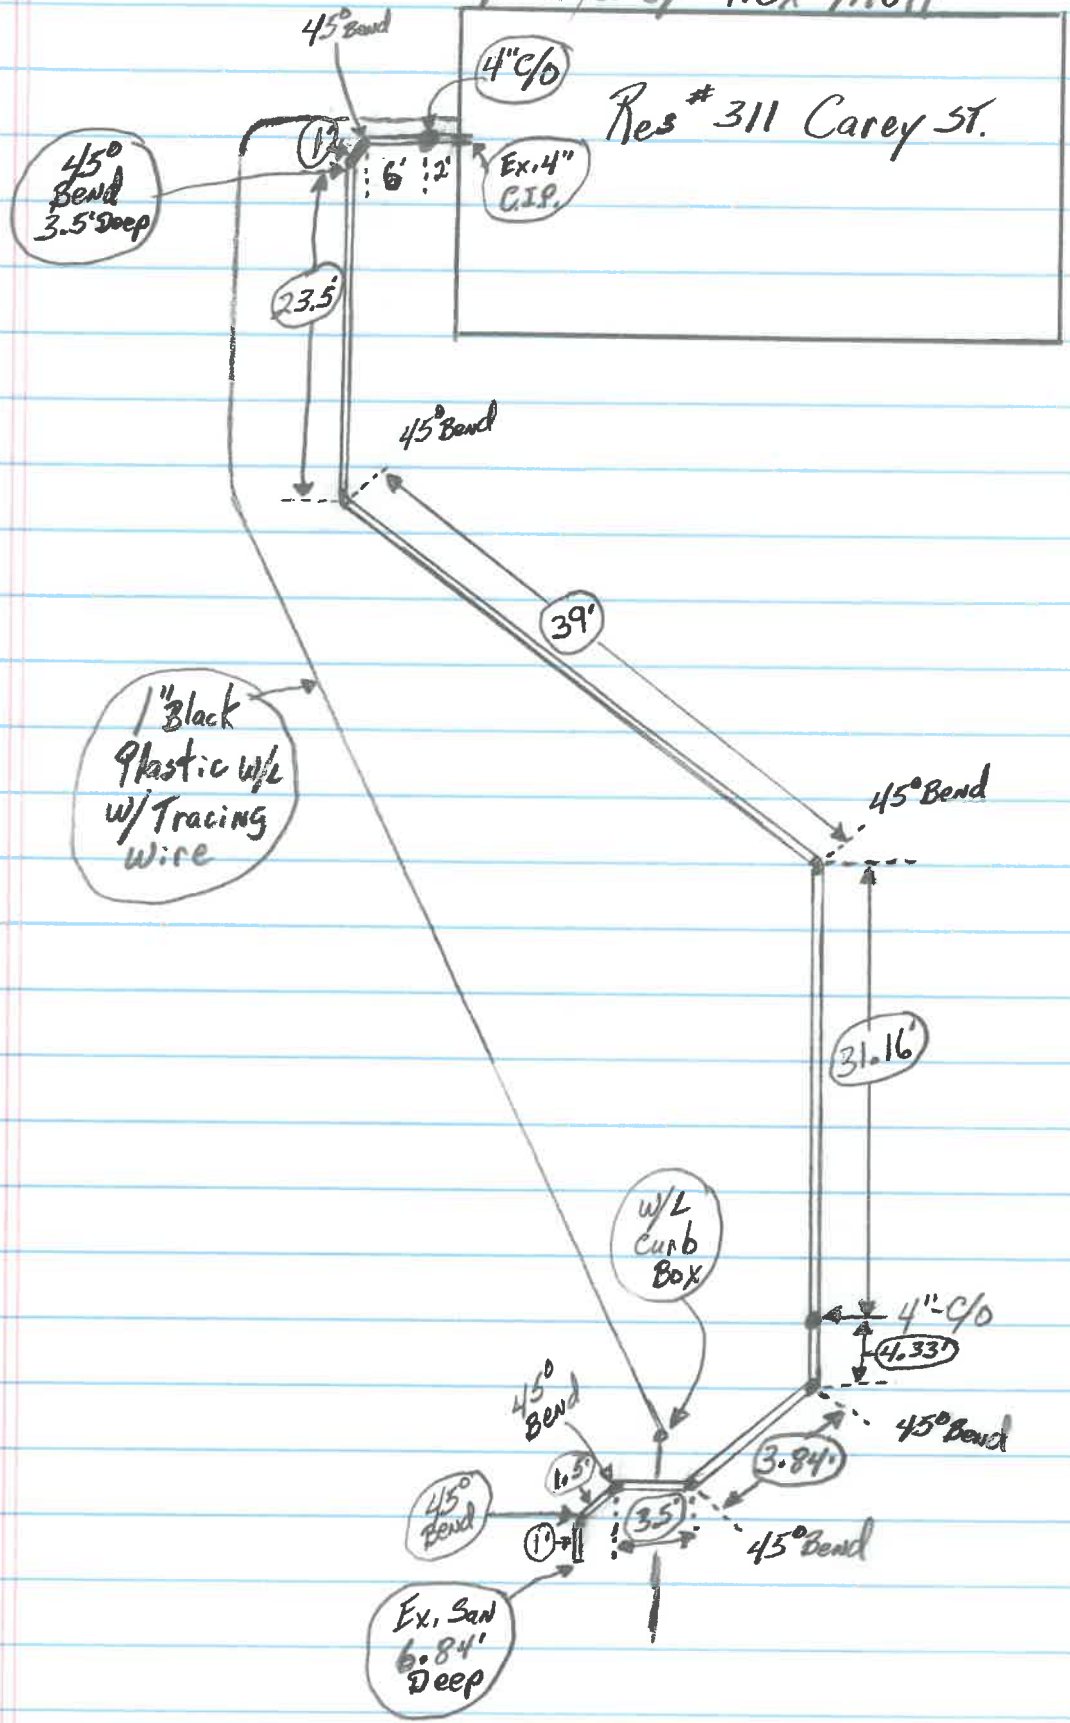 45° Bend
4" C/O
Res # 311 Carey St.
12
45°
Bend
3.5' Deep
6'
2'
Ex. 4"
C.I.P.
23.5'
45° Bend
39'
1" Black
Plastic W/L
W/ Tracing
Wire
45° Bend
31.16'
W/L
Curb
Box
4"-C/O
4.33'
45°
Bend
45° Bend
3.84'
1.5'
45°
Bend
3.5'
1'
45° Bend
Ex. San
6.84'
Deep